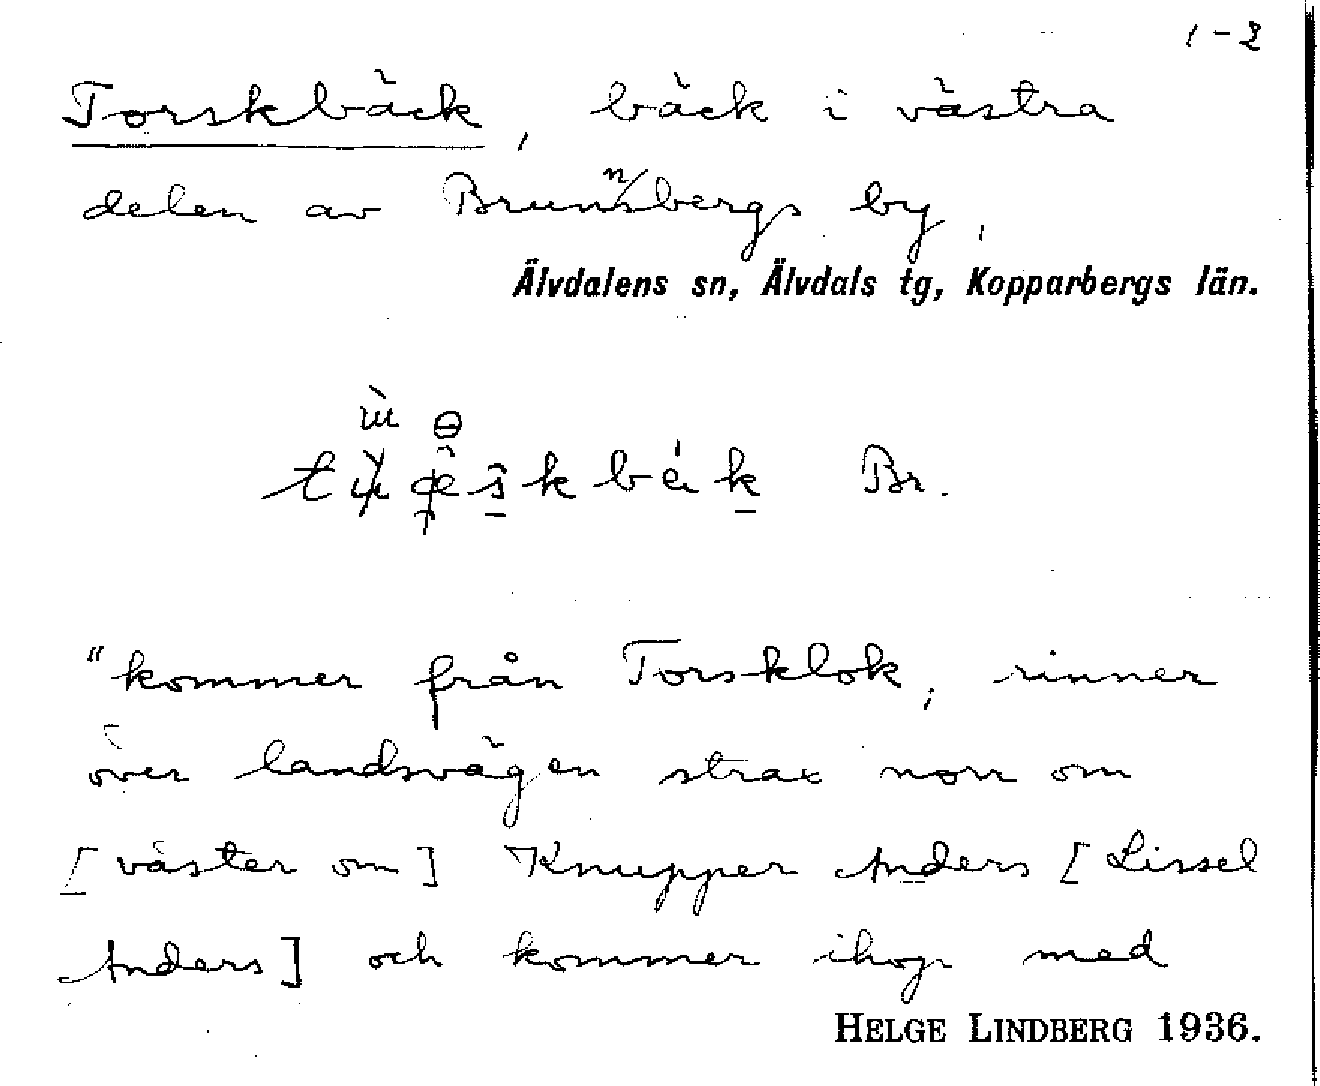 1-2
Torskbäck, bäck i västra
delen av Brunnsbergs by,
Älvdalens sn, Älvdals tg, Kopparbergs län.
Br.
"kommer från Torsklok, rinner
över landsvägen strax norr om
[väster om] Knupper Anders [Lissel
Anders] och kommer ihop med
HELGE LINDBERG 1936.